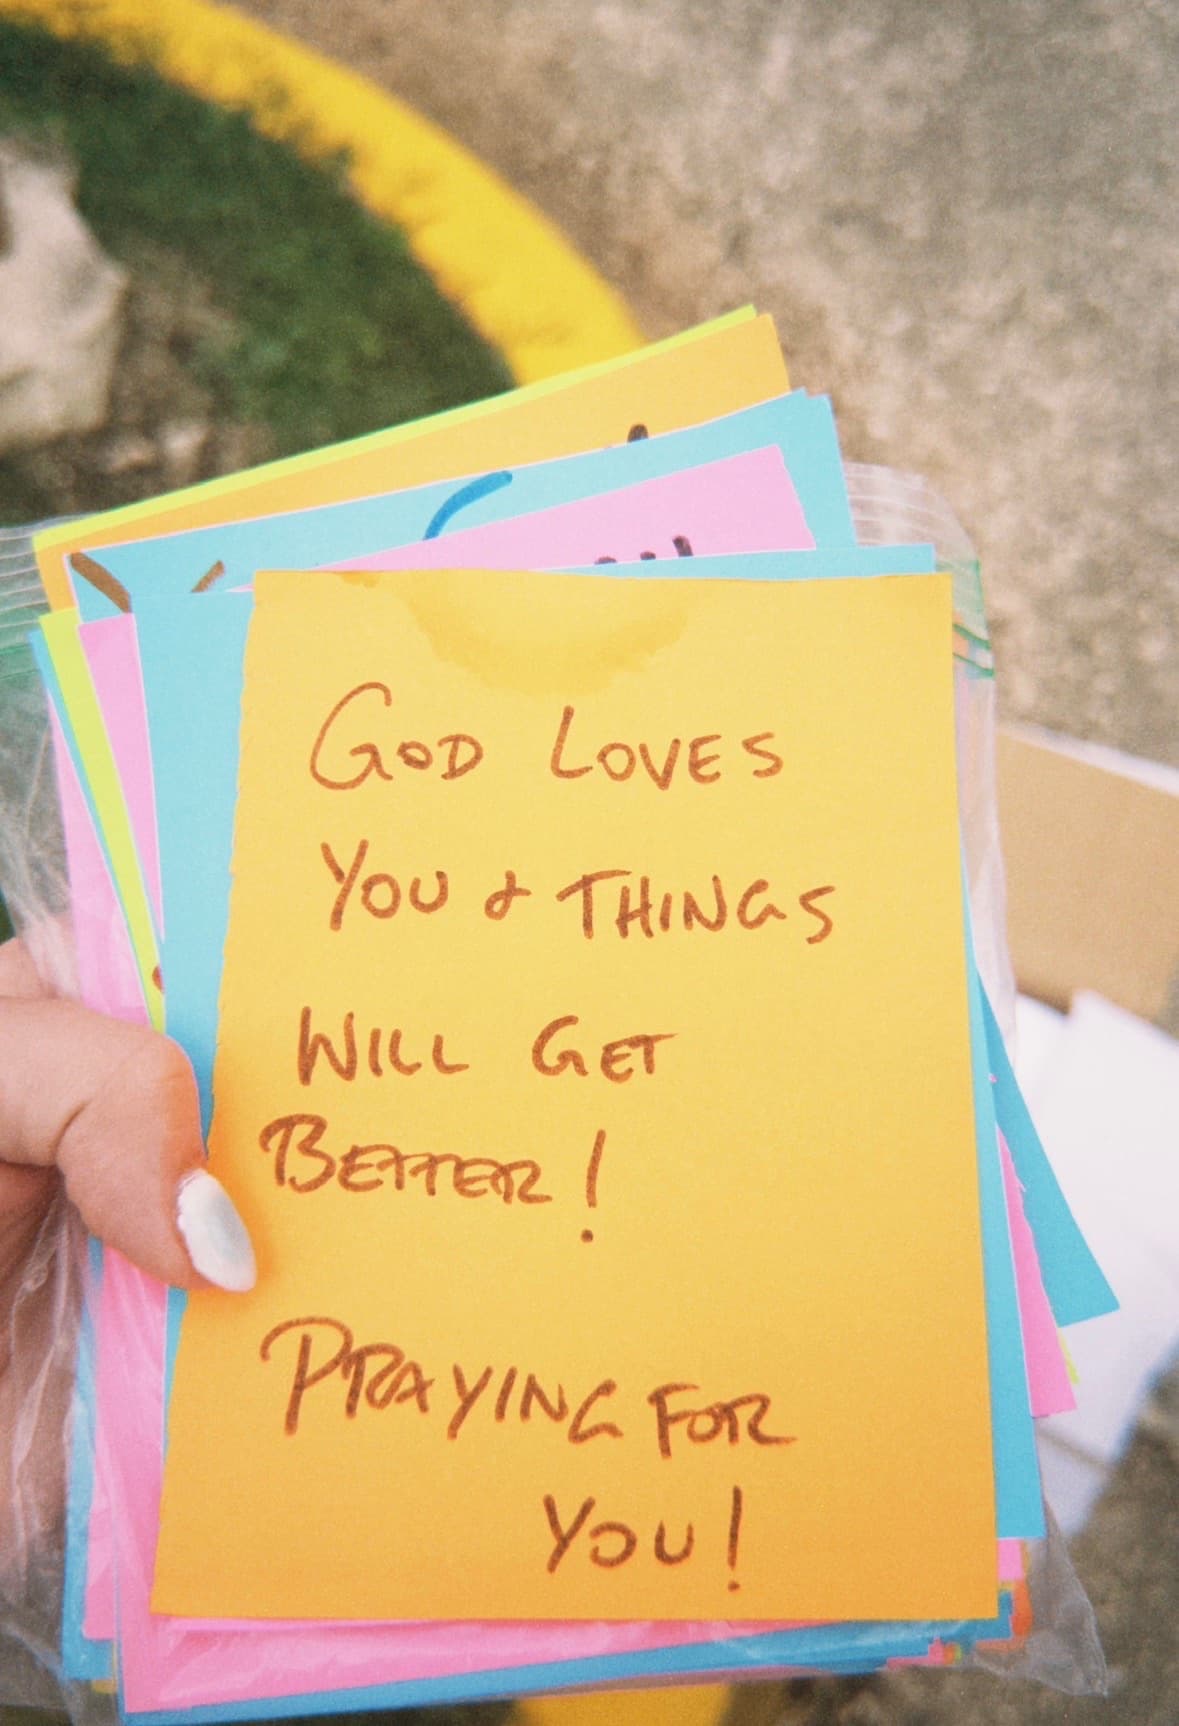 GOD LOVES
YOU & THINGS
WILL GET
BETTER!
PRAYING FOR
YOU!